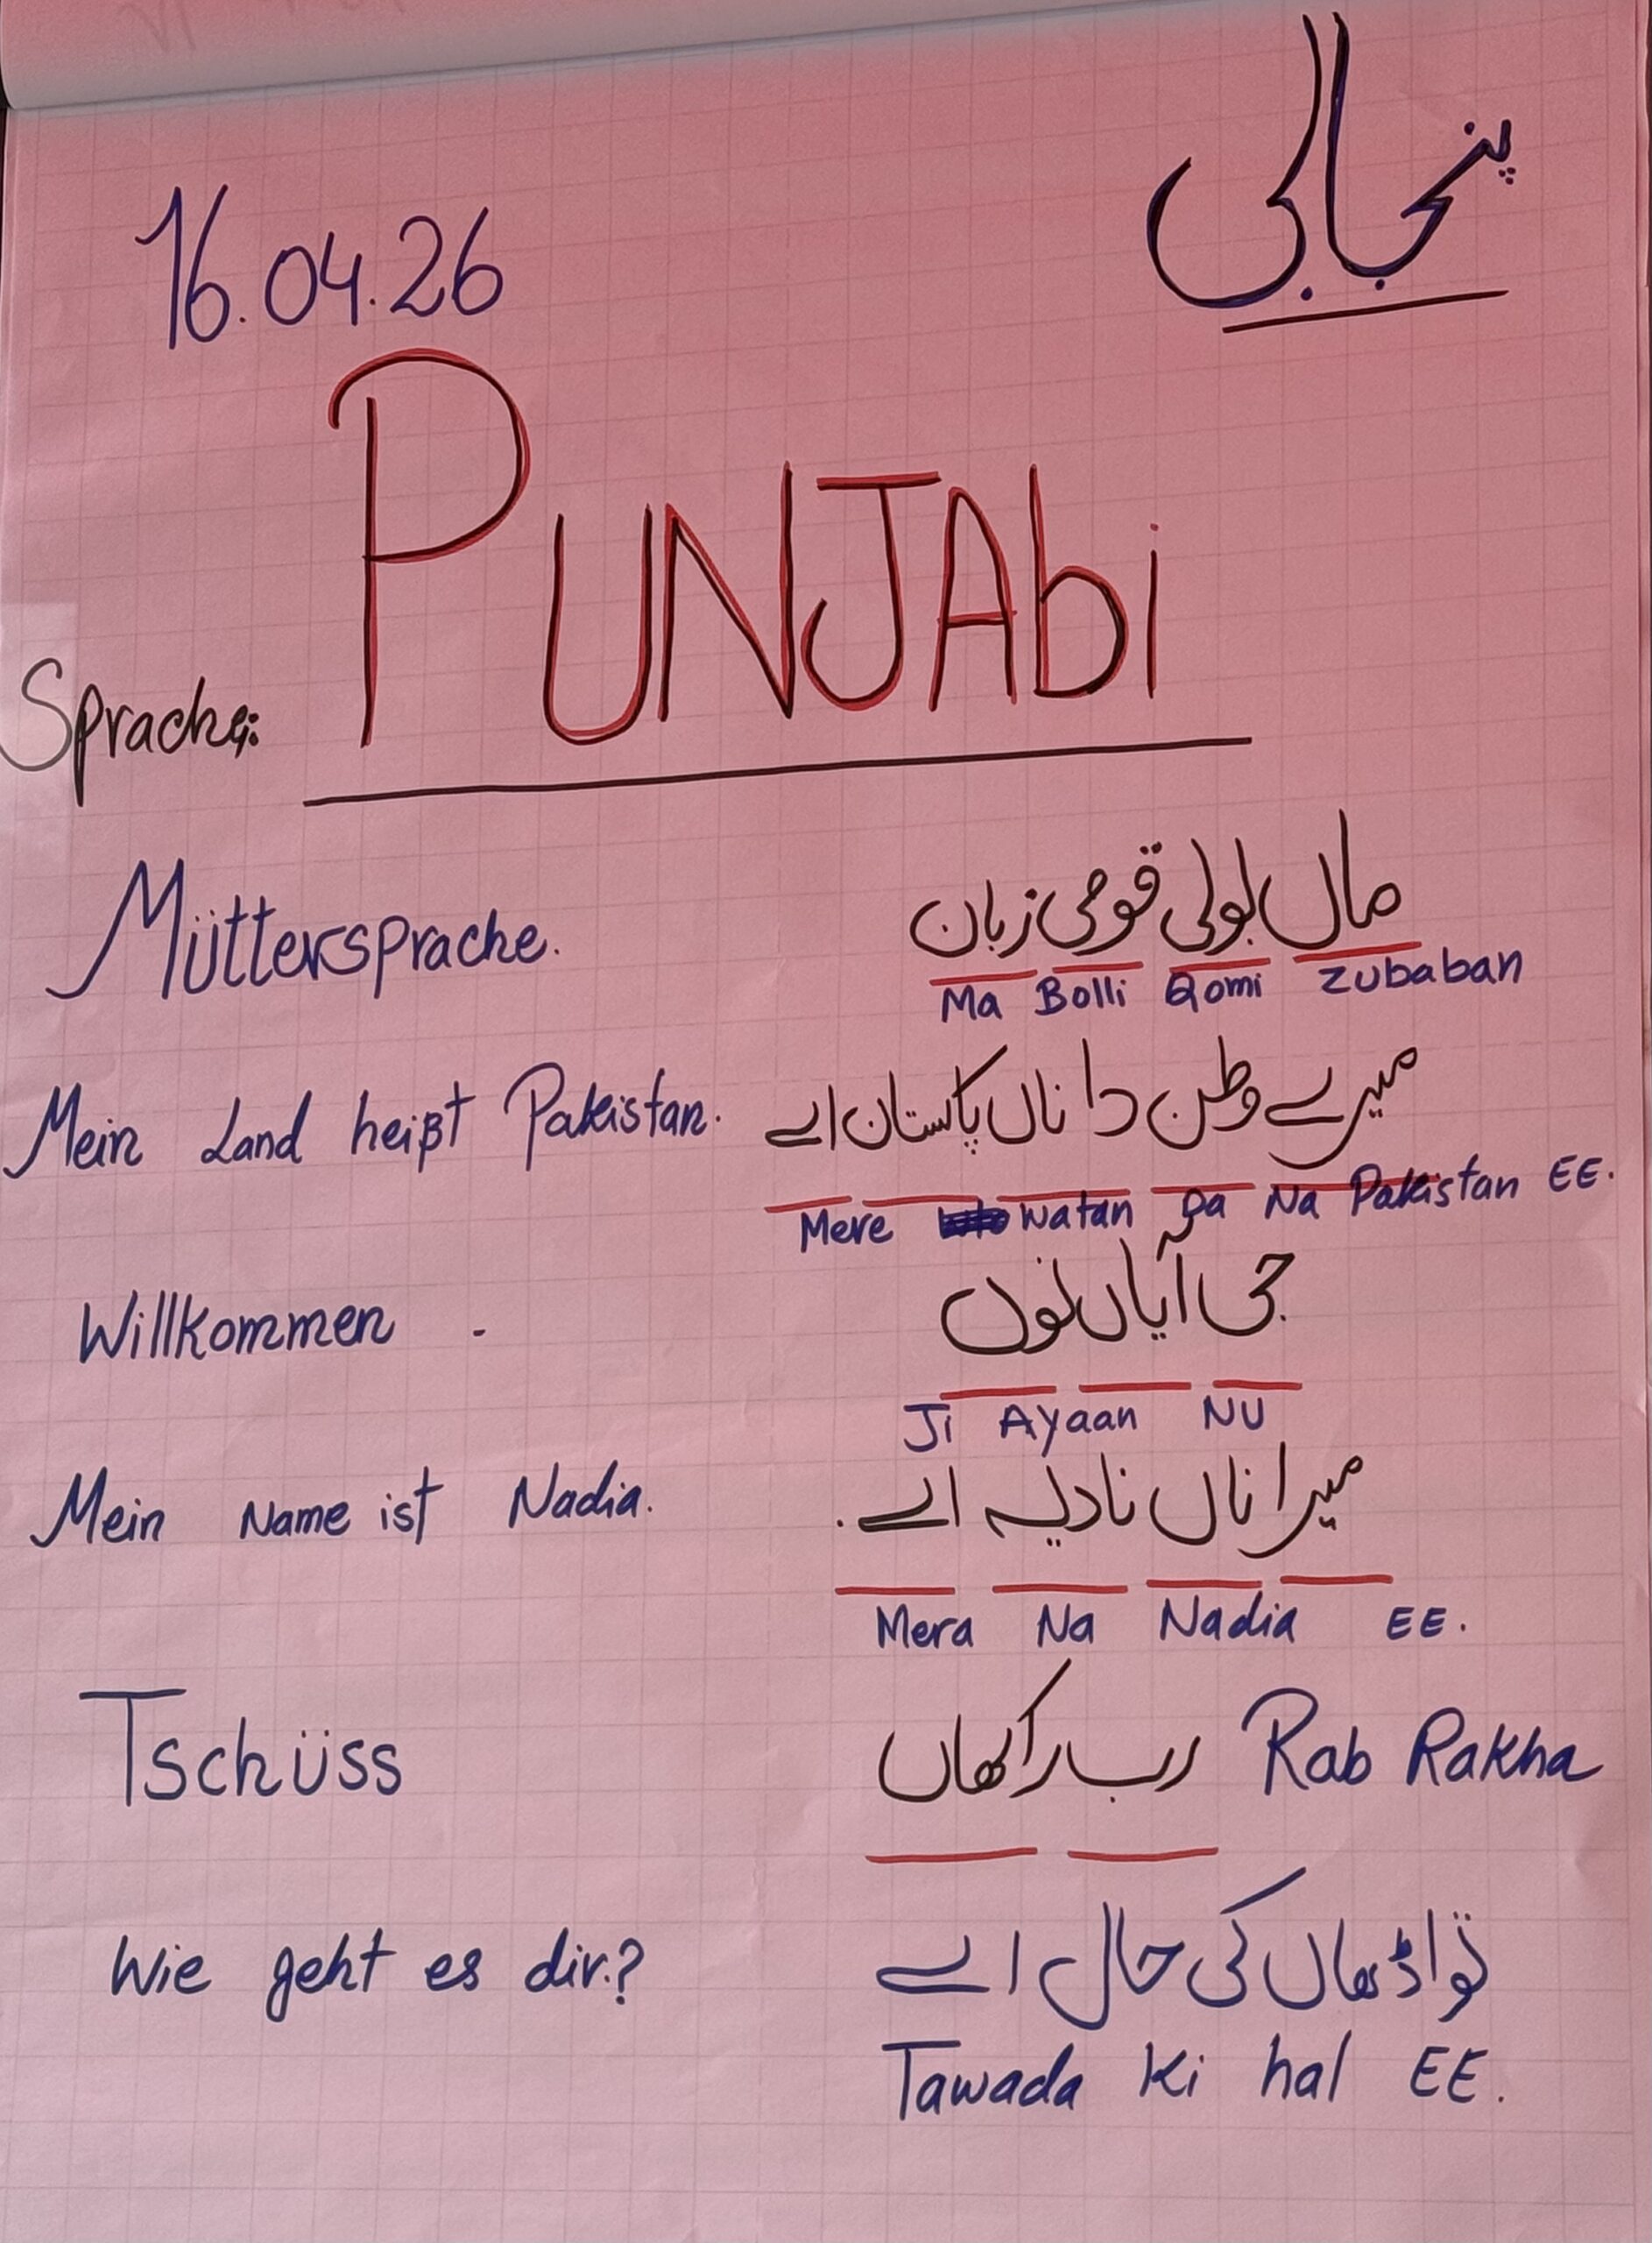 پنجابی
16.04.26
Sprache: PUNJAbi
Müttersprache. ماں بولی قومی زبان
Ma Bolli Qomi Zubaban
Mein Land heißt Pakistan. میرے وطن دا ناں پاکستان اے
Mere Watan Da Na Pakistan EE.
Willkommen - جی آیاں نوں
Ji Ayaan NU
Mein Name ist Nadia. میرا ناں نادیہ اے.
Mera Na Nadia EE.
Tschüss رب راکھاں Rab Rakha
Wie geht es dir.? تواڈھاں کی حال اے
Tawada Ki hal EE.